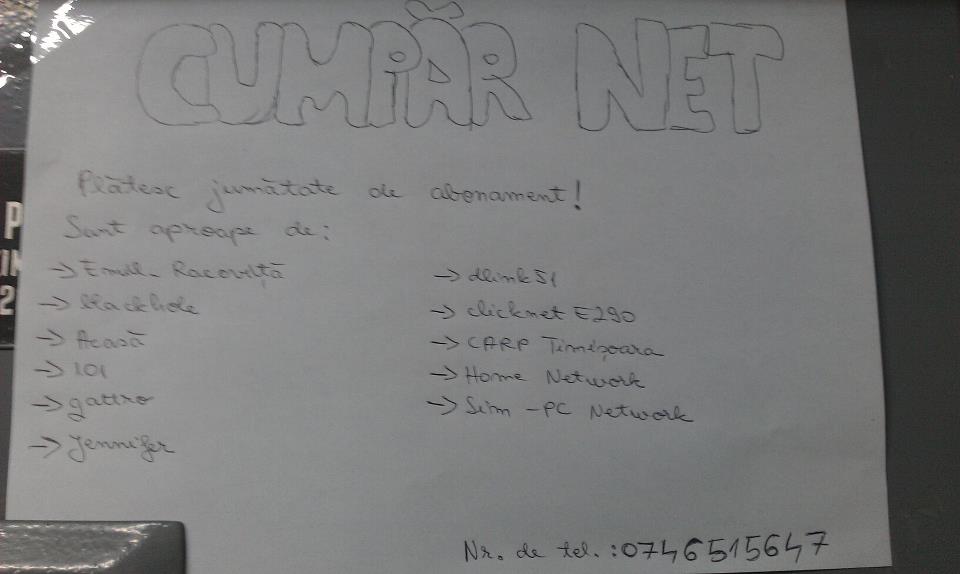 CUMPĂR NET
Plătesc jumătate de abonament!
Sunt aproape de:
→ Emil_Racoviță
→ blackhole
→ Acasă
→ 101
→ gattro
→ Jennifer
→ dlink51
→ clicknet E290
→ CARP Timișoara
→ Home Network
→ Sim-PC Network
Nr. de tel.: 0746515647